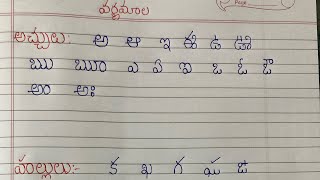 వర్ణమాల
అచ్చులు:- అ ఆ ఇ ఈ ఉ ఊ
ఋ ౠ ఎ ఏ ఐ ఒ ఓ ఔ
అం అః
హల్లులు:- క ఖ గ ఘ ఙ